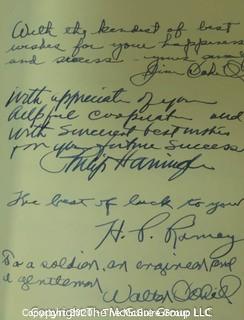 With the kindest of best
wishes for your happiness
and success - yours
Jim
With appreciation of your
helpful cooperation and
with sincerest best wishes
for your future success
Philip
The best of luck to you
H. P. Ramey
To a soldier, an engineer, and
a gentleman
Walter
Copyright 2020 The McGuire Group LLC